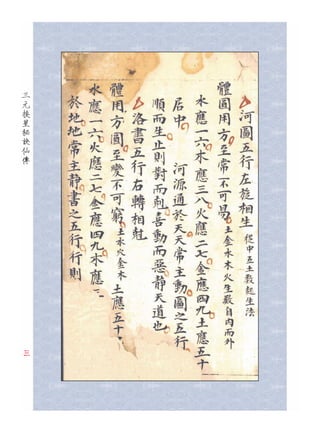 河圖五行左旋相生 從中五土數起生法
體圓用方主常不可易 土金水木火生數自內而外
水應一六木應三八火應二七金應四九土應五十
居中 河源通於天天常主動圖之五行
順而生止則對而剋喜動而惡靜天道也
洛書五行右轉相尅
體用方圓至變不可窮 土水火金木 土應五十
水應一六火應二七金應四九木應
於地地常主靜書之五行行則
三元挨星秘訣仙傳
三